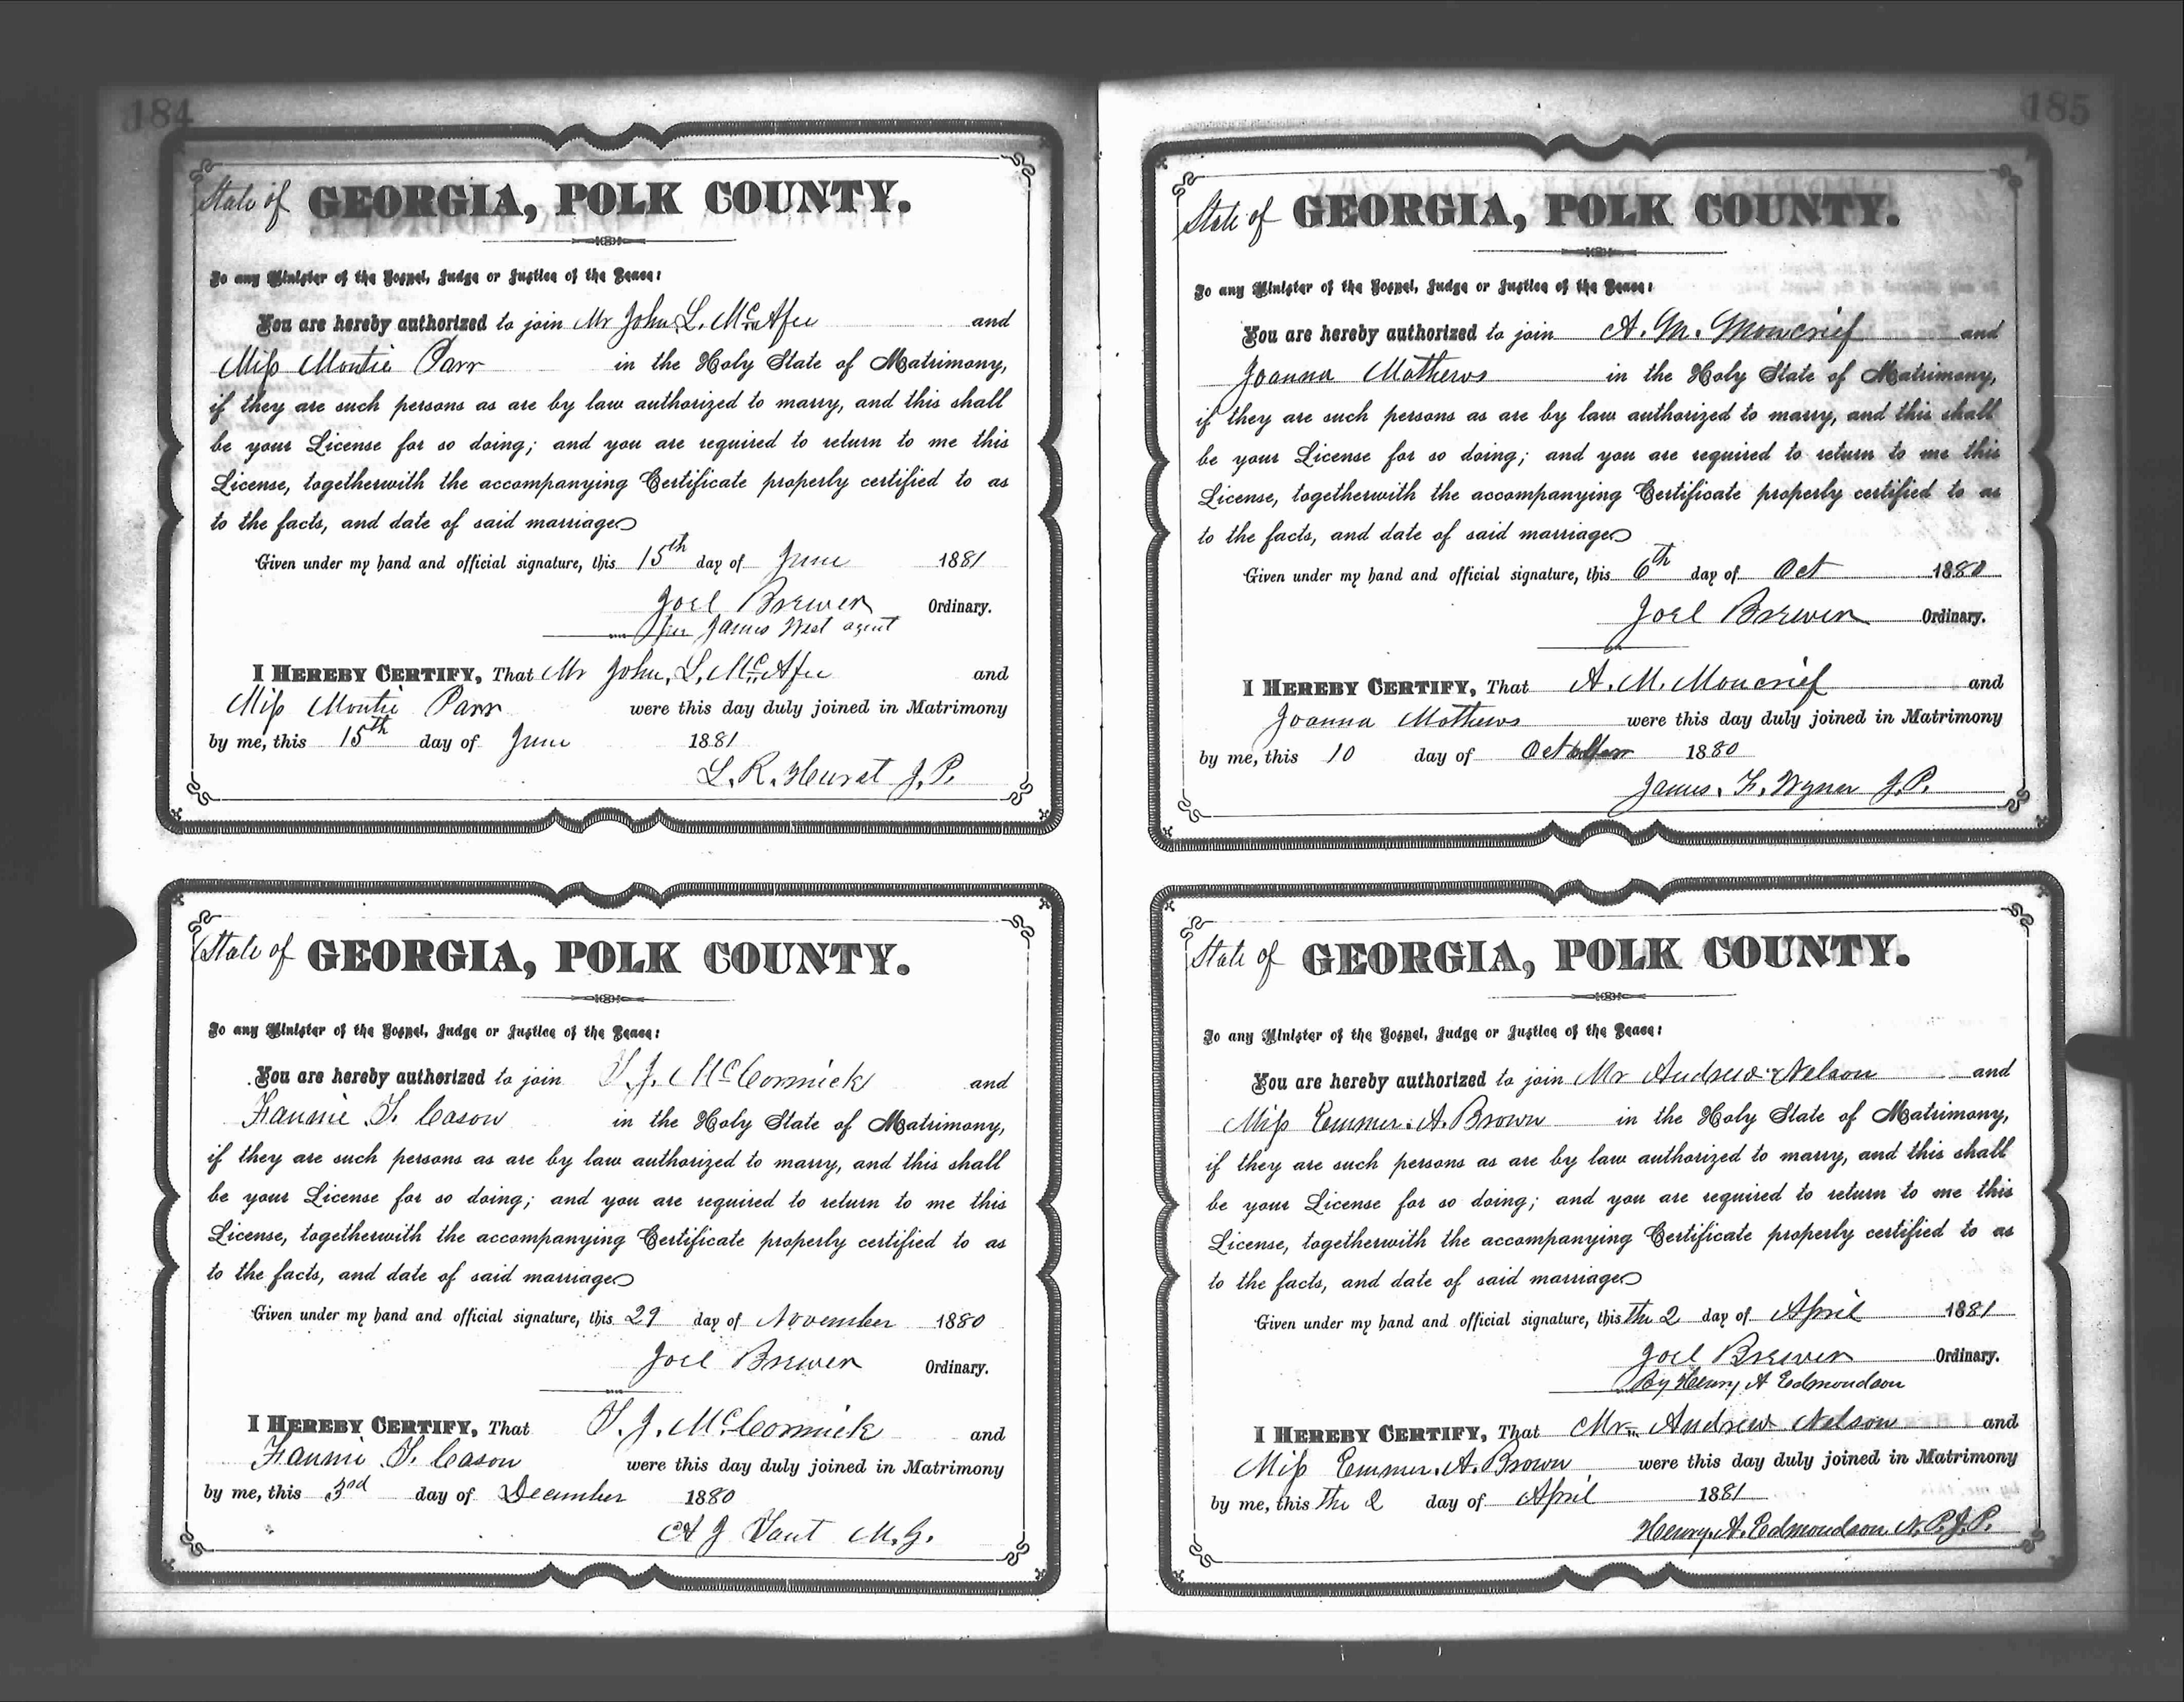 184
State of GEORGIA, POLK COUNTY.
To any Minister of the Gospel, Judge or Justice of the Peace:
You are hereby authorized to join Mr John L. McAfee and
Miss Montie Parr in the Holy State of Matrimony,
if they are such persons as are by law authorized to marry, and this shall
be your License for so doing; and you are required to return to me this
License, togetherwith the accompanying Certificate properly certified to as
to the facts, and date of said marriage
Given under my hand and official signature, this 15th day of June 1881
Joel Brewer Ordinary.
per James West agent
I HEREBY CERTIFY, That Mr John, L, McAfee and
Miss Montie Parr were this day duly joined in Matrimony
by me, this 15th day of June 1881
L. R. Hurst J. P.
State of GEORGIA, POLK COUNTY.
To any Minister of the Gospel, Judge or Justice of the Peace:
You are hereby authorized to join S. J. McCormick and
Fannie S. Cason in the Holy State of Matrimony,
if they are such persons as are by law authorized to marry, and this shall
be your License for so doing; and you are required to return to me this
License, togetherwith the accompanying Certificate properly certified to as
to the facts, and date of said marriage
Given under my hand and official signature, this 29 day of November 1880
Joel Brewer Ordinary.
I HEREBY CERTIFY, That S. J. McCormick and
Fannie S. Cason were this day duly joined in Matrimony
by me, this 3rd day of December 1880
A J M. G.
185
State of GEORGIA, POLK COUNTY.
To any Minister of the Gospel, Judge or Justice of the Peace:
You are hereby authorized to join A. M. Moncrief and
Joanna Mathews in the Holy State of Matrimony,
if they are such persons as are by law authorized to marry, and this shall
be your License for so doing; and you are required to return to me this
License, togetherwith the accompanying Certificate properly certified to as
to the facts, and date of said marriage
Given under my hand and official signature, this 6th day of Oct 1880
Joel Brewer Ordinary.
I HEREBY CERTIFY, That A. M. Moncrief and
Joanna Mathews were this day duly joined in Matrimony
by me, this 10 day of October 1880
James. F. Wyner J. P.
State of GEORGIA, POLK COUNTY.
To any Minister of the Gospel, Judge or Justice of the Peace:
You are hereby authorized to join Mr Andrew Nelson and
Miss Emmer. A. Brown in the Holy State of Matrimony,
if they are such persons as are by law authorized to marry, and this shall
be your License for so doing; and you are required to return to me this
License, togetherwith the accompanying Certificate properly certified to as
to the facts, and date of said marriage
Given under my hand and official signature, this The 2 day of April 1881
Joel Brewer Ordinary.
By Henry A Edmondson
I HEREBY CERTIFY, That Mr Andrew Nelson and
Miss Emmer. A. Brown were this day duly joined in Matrimony
by me, this The 2 day of April 1881
Henry. A. Edmondson N. P. J. P.